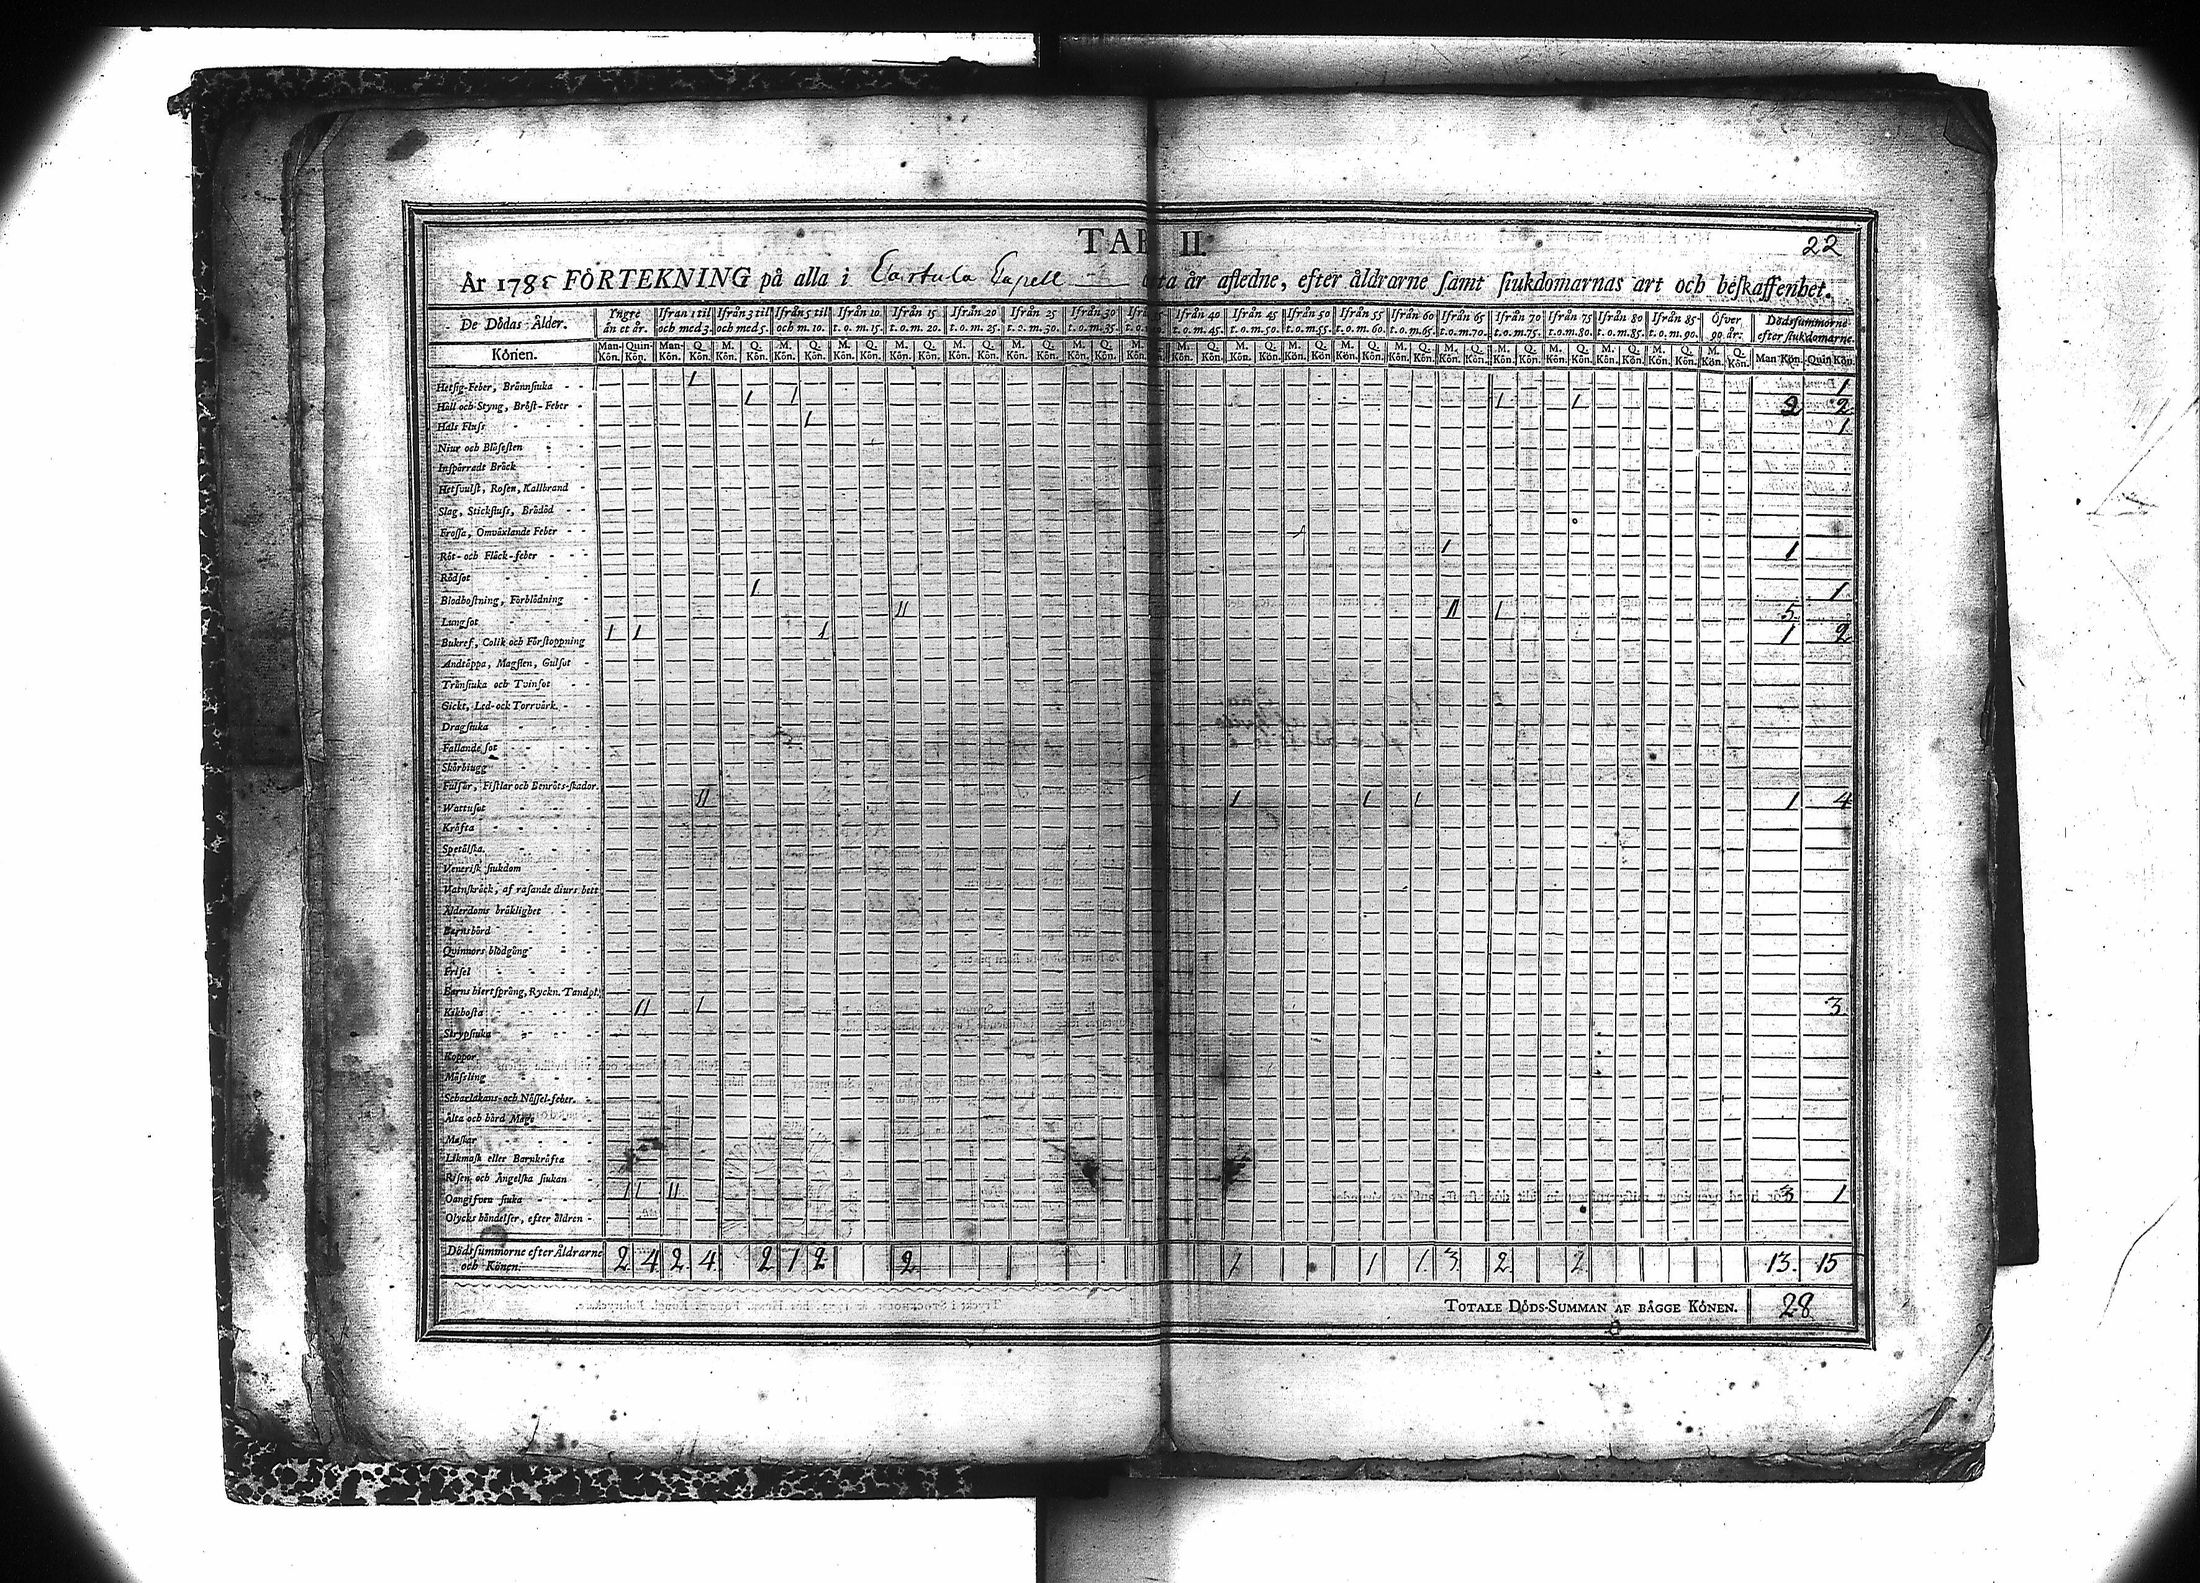 TAB II.
22
År 1785 FÖRTEKNING på alla i Cartula Capell detta år afledne, efter åldrarne samt siukdomarnas art och beskaffenhet.
De Dödas Ålder. Yngre än et år. Ifrån 1 til och med 3. Ifrån 3 til och med 5. Ifrån 5 til och m. 10. Ifrån 10 t. o. m. 15. Ifrån 15 t. o. m. 20. Ifrån 20 t. o. m. 25. Ifrån 25 t. o. m. 30. Ifrån 30 t. o. m. 35. Ifrån 40 t. o. m. 45. Ifrån 45 t. o. m. 50. Ifrån 50 t. o. m. 55. Ifrån 55 t. o. m. 60. Ifrån 60 t. o. m. 65. Ifrån 65 t. o. m. 70. Ifrån 70 t. o. m. 75. Ifrån 75 t. o. m. 80. Ifrån 80 t. o. m. 85. Ifrån 85 t. o. m. 90. Öfver 90 år. Dödssummorne efter siukdomarne.
Könen. Man-Kön. Quin-Kön. Man-Kön. Q. Kön. M. Kön. Q. Kön. M. Kön. Q. Kön. M. Kön. Q. Kön. M. Kön. Q. Kön. M. Kön. Q. Kön. M. Kön. Q. Kön. M. Kön. Q. Kön. M. Kön. Q. Kön. M. Kön. Q. Kön. M. Kön. Q. Kön. M. Kön. Q. Kön. M. Kön. Q. Kön. M. Kön. Q. Kön. M. Kön. Q. Kön. M. Kön. Q. Kön. M. Kön. Q. Kön. M. Kön. Q. Kön. M. Kön. Q. Kön. Man Kön. Quin Kön.
Hetsig-Feber, Brännsiuka - - 1 1
Håll och Styng, Bröst-Feber - 1 1 1 1 2 2
Hals Fluss - - - - 1 1
Niur och Blåsesten - -
Inspärradt Bråck - -
Hetsvulst, Rosen, Kallbrand -
Slag, Stickfluss, Brådöd - -
Frossa, Omväxlande Feber - -
Röt- och Fläck-feber - - - 1 1
Rödsot - - - - -
Blodhostning, Förblödning 1 1
Lungsot - - - - - 11 11 1 5
Bukref, Colik och Förstoppning 1 1 1 1 2
Andtäppa, Magsten, Gulsot -
Trånsiuka och Tvinsot - -
Gickt, Led-och Torrvärk. - -
Dragsiuka - - - -
Fallande sot - - - -
Skörbiugg - - - -
Fulsår, Fistlar och Benröts-skador.
Wattusot - - - - 11 1 1 1 1 4
Kräfta - - - - -
Spetälska. - - - -
Venerisk siukdom - -
Vatnskräck, af rasande diurs bett
Ålderdoms bräklighet - - -
Barnsbörd - - - -
Qvinnors blodgång - - -
Frisel - - - - -
Barns hiertsprång, Ryckn. Tandpl.
Kikhosta - - - - 11 1 3
Skrypsiuka - - - -
Koppor - - - - -
Mässling - - - -
Scharlakans-och Nässel-feber. -
Älta och hård Mage - -
Maskar - - - -
Likmask eller Barnkräfta -
Risen och Ängelska siukan -
Oangifven siuka - - - 11 11 3 1
Olycks händelser, efter åldren -
Dödssummorne efter Åldrarne och Könen. 2 4 2 4 2 1 2 2 1 1 1 3 2 2 13. 15
TOTALE DÖDS-SUMMAN AF BÅGGE KÖNEN. 28